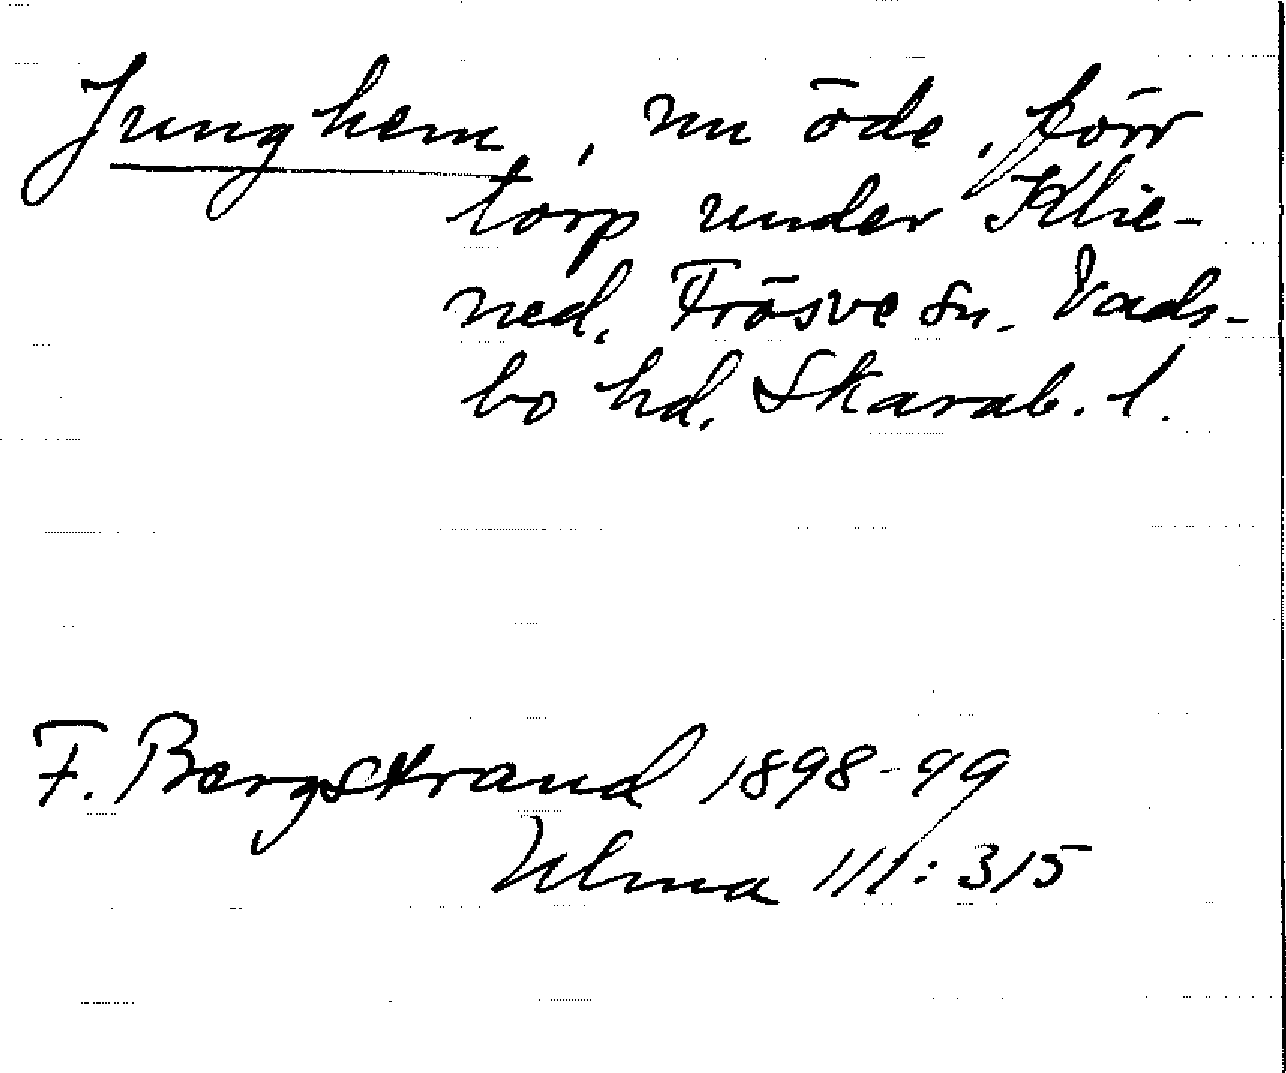 Junghem, nu öde, förr
torp under Klie-
ned, Frösve sn. Vads-
bo hd, Skarab. l.
F. Bergstrand 1898-99
Ulma 111:315